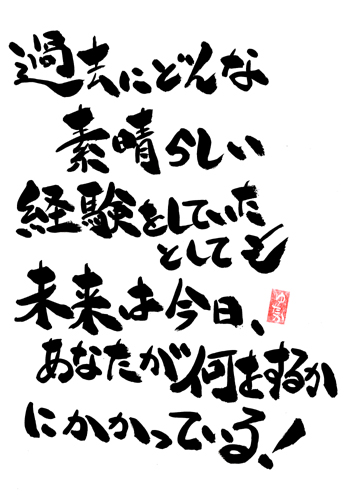 過去にどんな
素晴らしい
経験をしていた
としても
未来は今日、
あなたが何をするか
にかかっている!